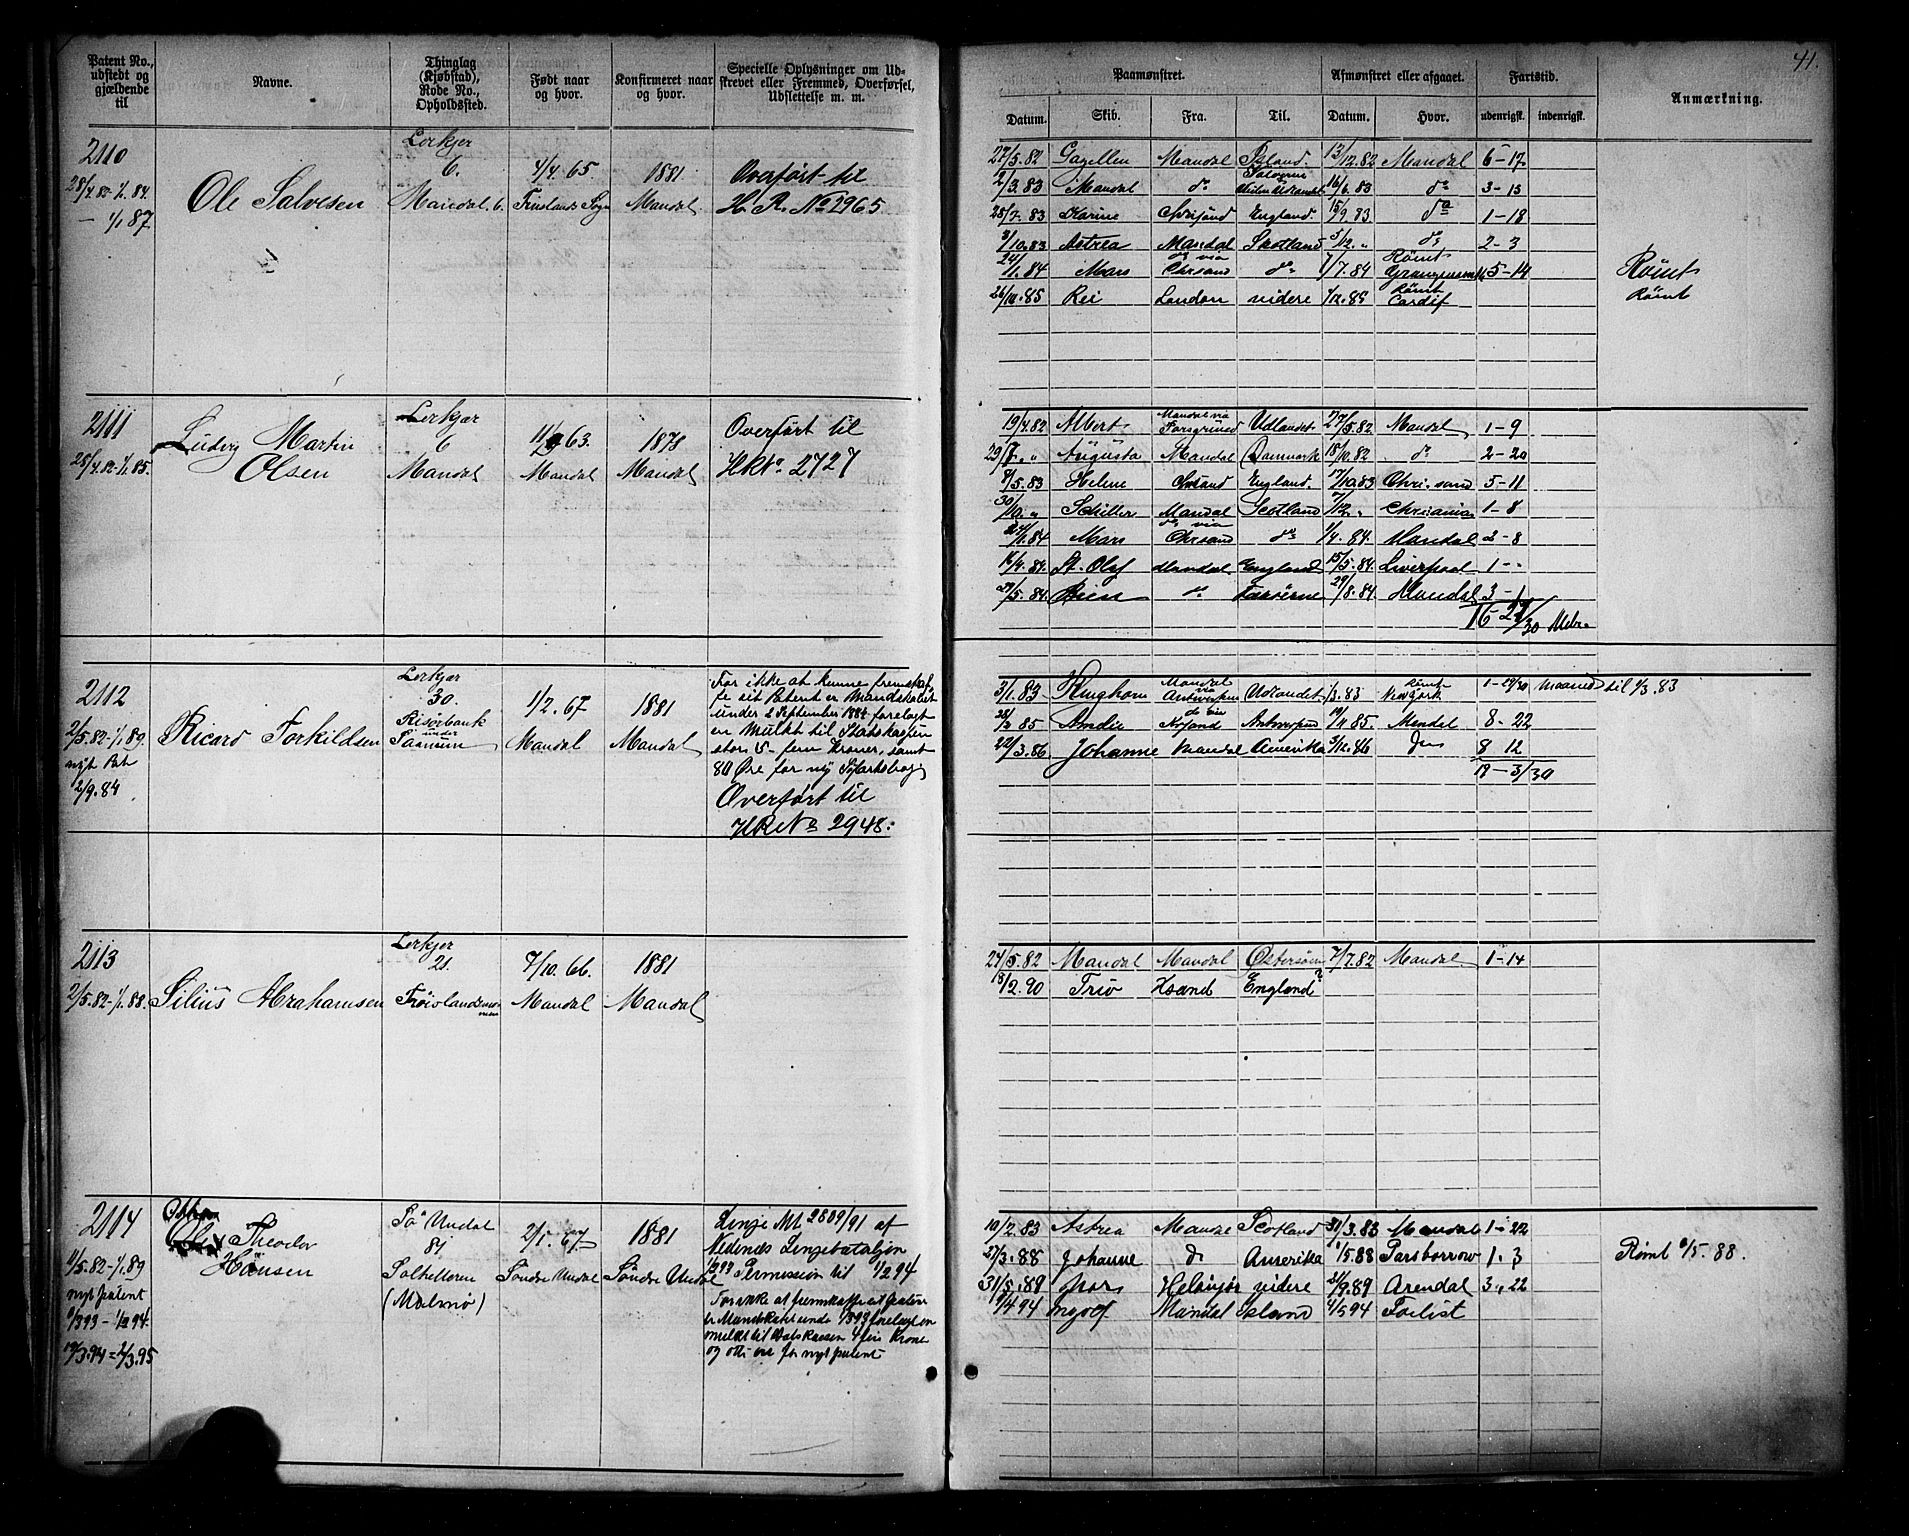 41.
Patent No., udstedt og gjældende til
Navne.
Thinglag (Kjøbstad), Rode No., Opholdssted.
Født naar og hvor.
Konfirmeret naar og hvor.
Specielle Oplysninger om Udskrevet eller Fremmed, Overførsel, Udslettelse m. m.
Paamønstret.
Afmønstret eller afgaaet.
Fartstid.
Anmærkning.
Datum. Skib. Fra. Til. Datum. Hvor. udenrigsk. indenrigsk.
2110
28/4.82-1/1.84.
- 1/1 87.
Ole Salvesen
Lerkjer
6.
Mandal. 6.
4/4.65.
1881
Mandal
Overført til
H. R. No 2965
22/5.82 Gazellen Mandal Island. 13/12.82 Mandal 6-17
2/3.83 Mandal do 16/6.83 do 3-13
Karine England. 15/9.83 do 1-18
3/10.83 Astrea Mandal Skotland 5/12. " do 2-3
do via Rømt
24/1.84 Mars Chrsand do 1/7.84 5-14
Rømt
26/10.85 Rei London videre 1/12.85 Cardif
Rømt
Rømt
2111
28/4.82-1/1.85.
Ludvig Martin
Olsen
Lerkjær
6
Mandal
63.
Mandal
1878
Mandal
Overført til
HR No 2727
Mandal via
19/4.82 Albert Udlandet 27/5.82 Mandal 1-9
29/7. " Augusta Mandal Danmark 18/10.82 do 2-20
9/5.83 Helene Chrsand England. 17/10.83 Chri.sand 5-11
30/10. " Schiller Mandal Scotland 7/12. " Chrisania 1-8
do via
24/1.84 Mars Chrsand do 1/4.84. Mandal 2-8
16/4.84. St. Olaf Mandal. England 15/5.84. Liverpool 1--
27/5.84. do Færøerne 29/8.84. Mandal 3-1
16-27/30 Mdr.
2112
2/5.82-1/1.89.
nyt Pat
2/9.84
Ricard Torkildsen
Lerkjær
30.
Risørbank
under
1/2.67
Mandal
1881
Mandal
For ikke at kunne fremskaffe
sit Patent er Mandskabet
under 2 September 1884 forelagt
en Mulkt til Statskassen
stor 5- fem Kroner, samt
80 Øre for ny Søfartsbog
Overført til
HR No 2948.
Mandal
via
3/1.83 Kinghorn Antwerpen Udlandet. 1/3.83 1-29/30 Maaned til 1/3 83
85 Amelie Antwerpen 19/11 85. Mandal 8-22
22/3.86 Johanne Mandal Amerika 3/12.86 do 8 12
19-3/30
2113
2/5.82-1/1.88.
Silius Abrahamsen
Lerkjer
21.
7/10.66.
Mandal
1881
Mandal
24/5.82 Mandal Mandal Østersøen 7/7.82 Mandal. 1-14
18/2.90 Trio Hsand England?
2114
1/5.82-1/1.89
nyt patent
1/3 93 - 1/2 94.
19/3.94 = 2/3.95
Theodor
Hansen
Sø Undal
84
(Malmø)
2/1.67
Søndre Undal
1881
Søndre Undal
Linje No 2809/91 af
Nedenæs Linjebataljon
Permission til 1/2 94
For ikke at fremskaffe sit patent
4 fire Krone
og otti øre for nyt patent
10/2.83 Astrea Mandal Scotland 31/3.83 Mandal 1-22
27/3.88 Johanne do Amerika 1/5.88 Parsborrow 1. 3
31/5.89 Helsingør videre 21/9.89 Arendal 3., 22
Mandal Island 4/5 94 Forlist
Rømt 1/5. 88.